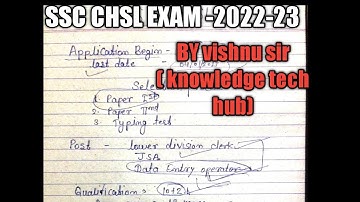 SSC CHSL EXAM -2022-23
Application Begin -
BY vishnu sir
( knowledge tech
hub)
last date -
Sele
1. Paper Ist
2. Paper IInd
3. Typing test
Post - lower division clerk
JSA
Data Entry operator
Qualification - (10+2)